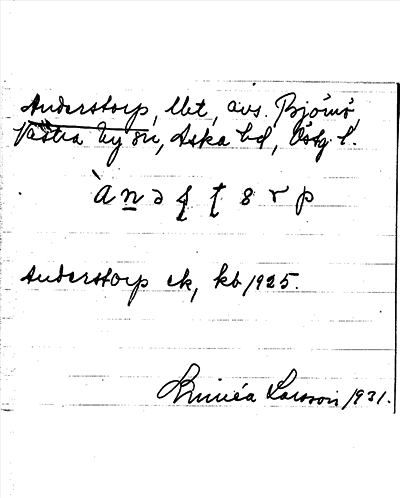 Anderstorp, lht, avs. Björnö,
Västra Ny sn, Aska hd, Östg. l.
Anderstorp ek, kb 1925.
Linnéa Larsson 1931.